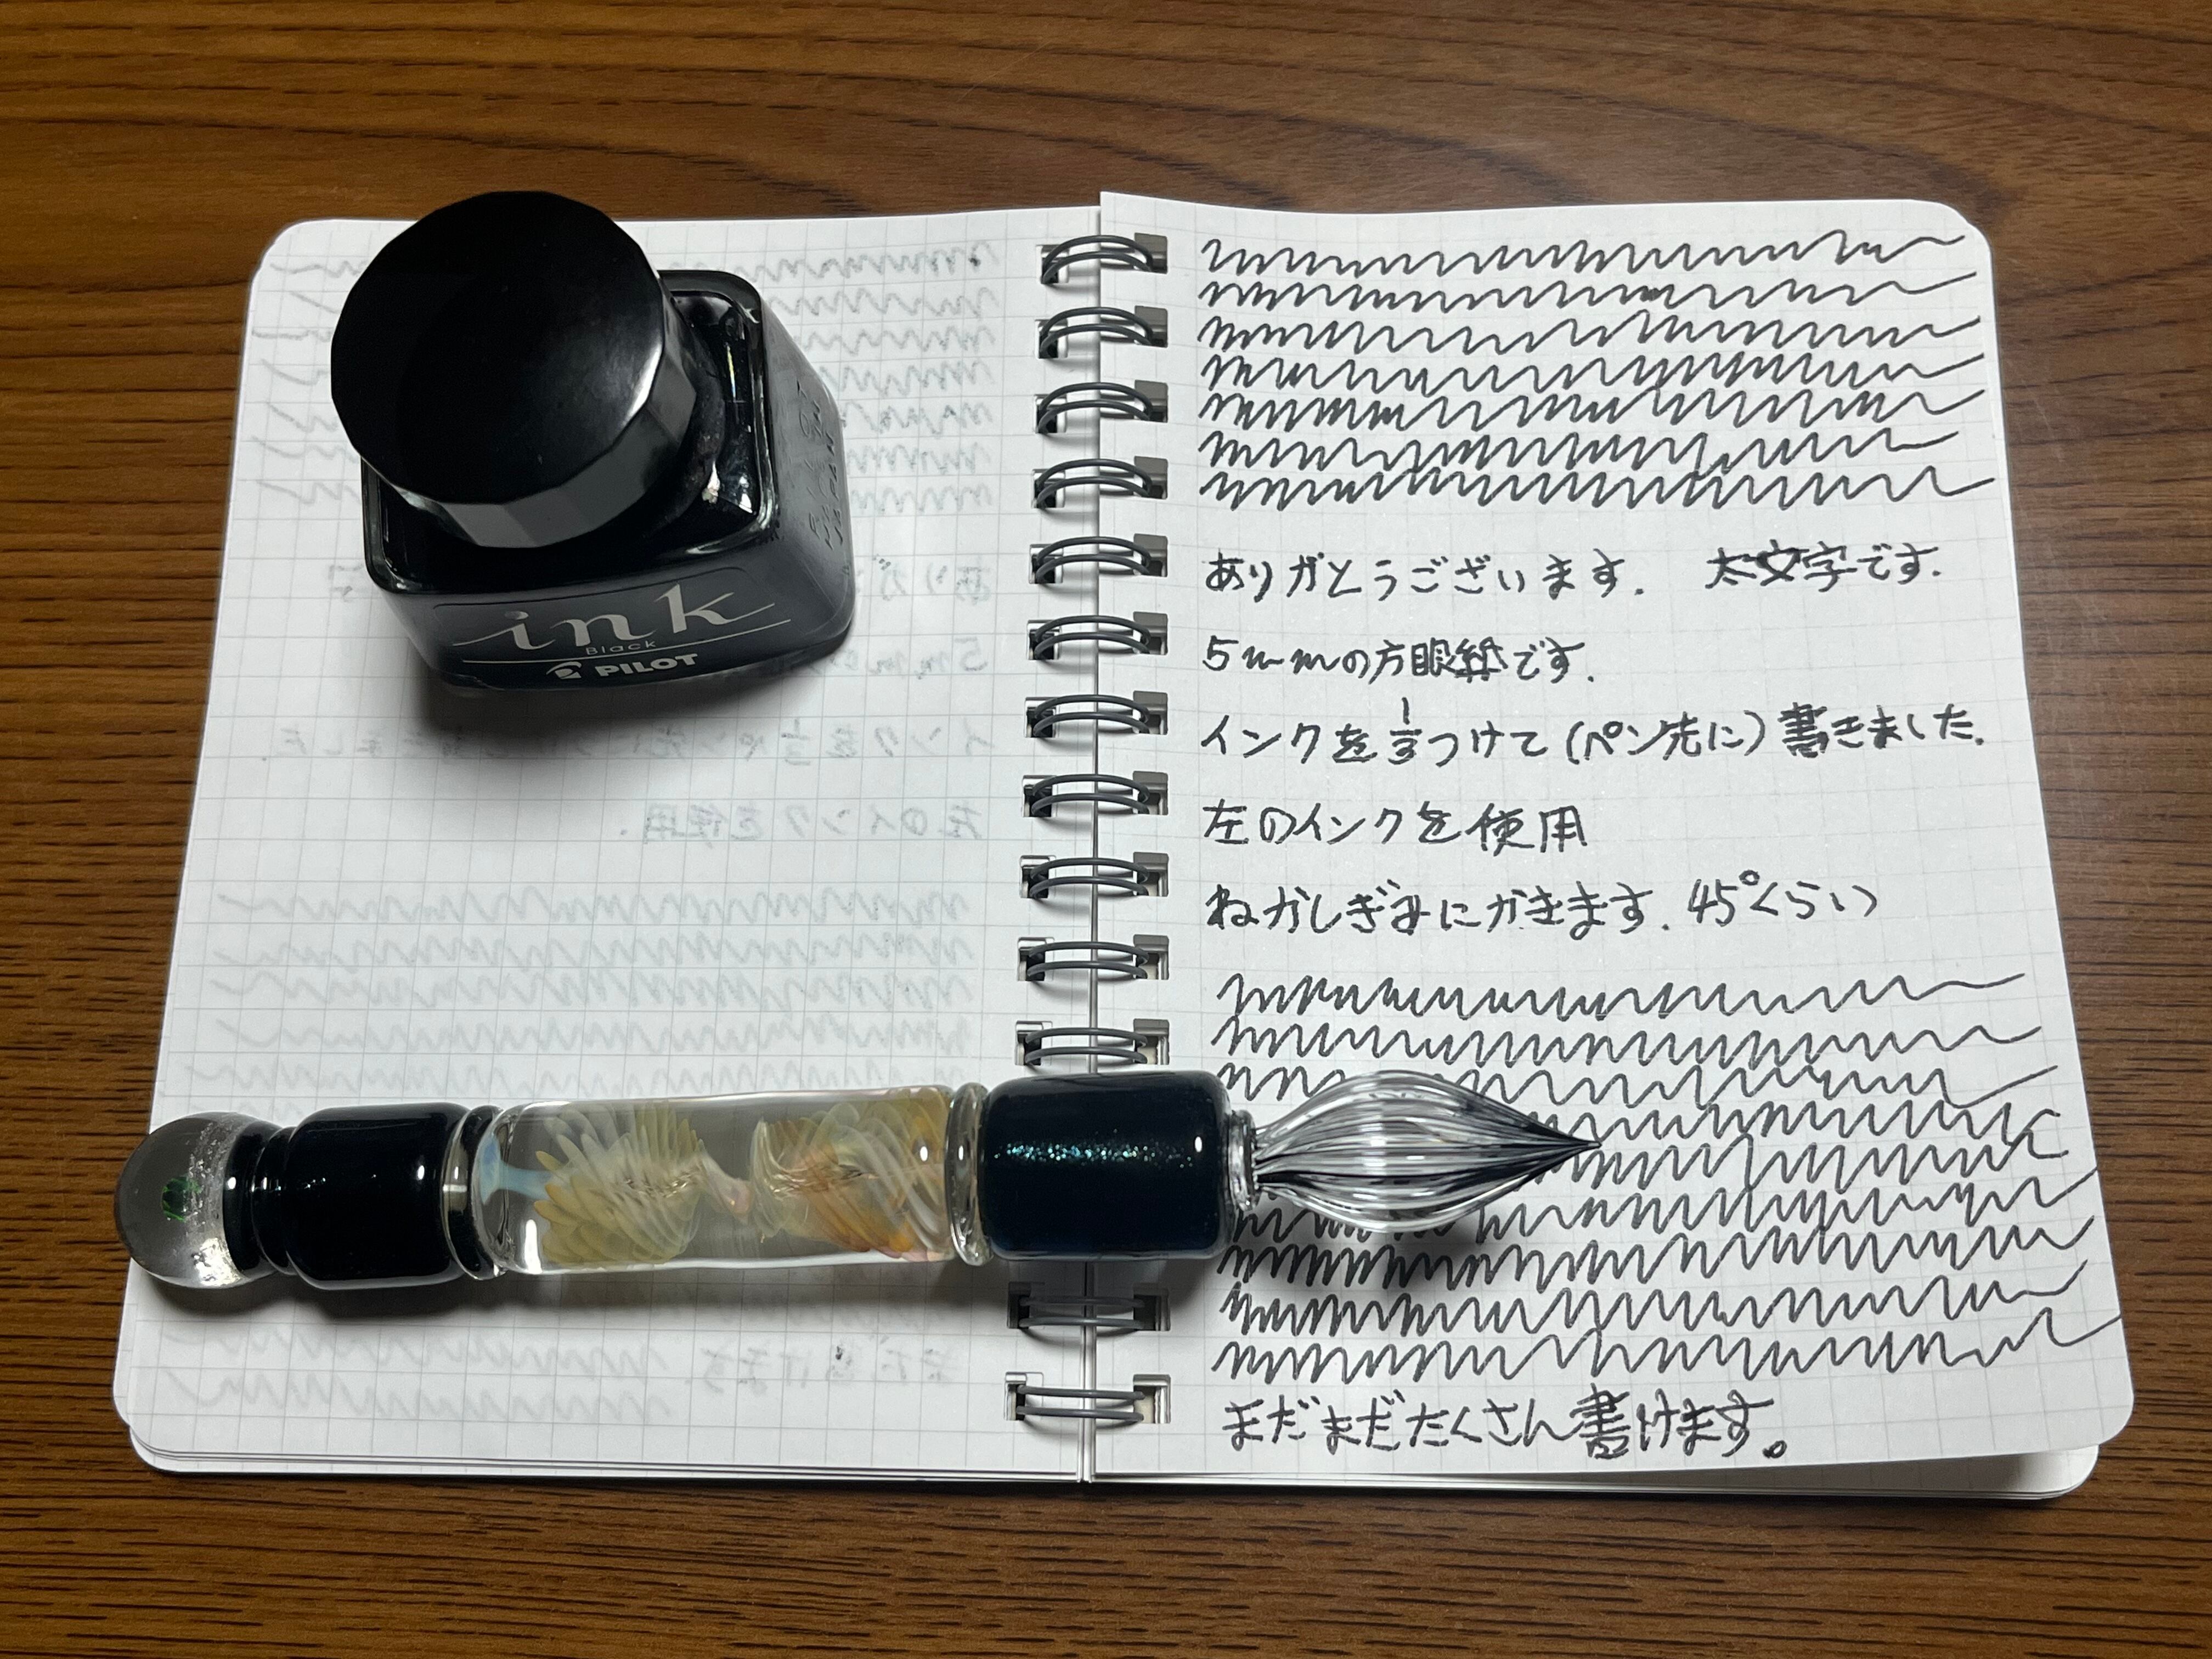 ink
Black
PILOT
ありがとうございます. 太文字です.
5mmの方眼紙です.
インクを1/3つけて(ペン先に)書きました.
左のインクを使用
ねかしぎみにかきます. 45°くらい
まだまだたくさん書けます。